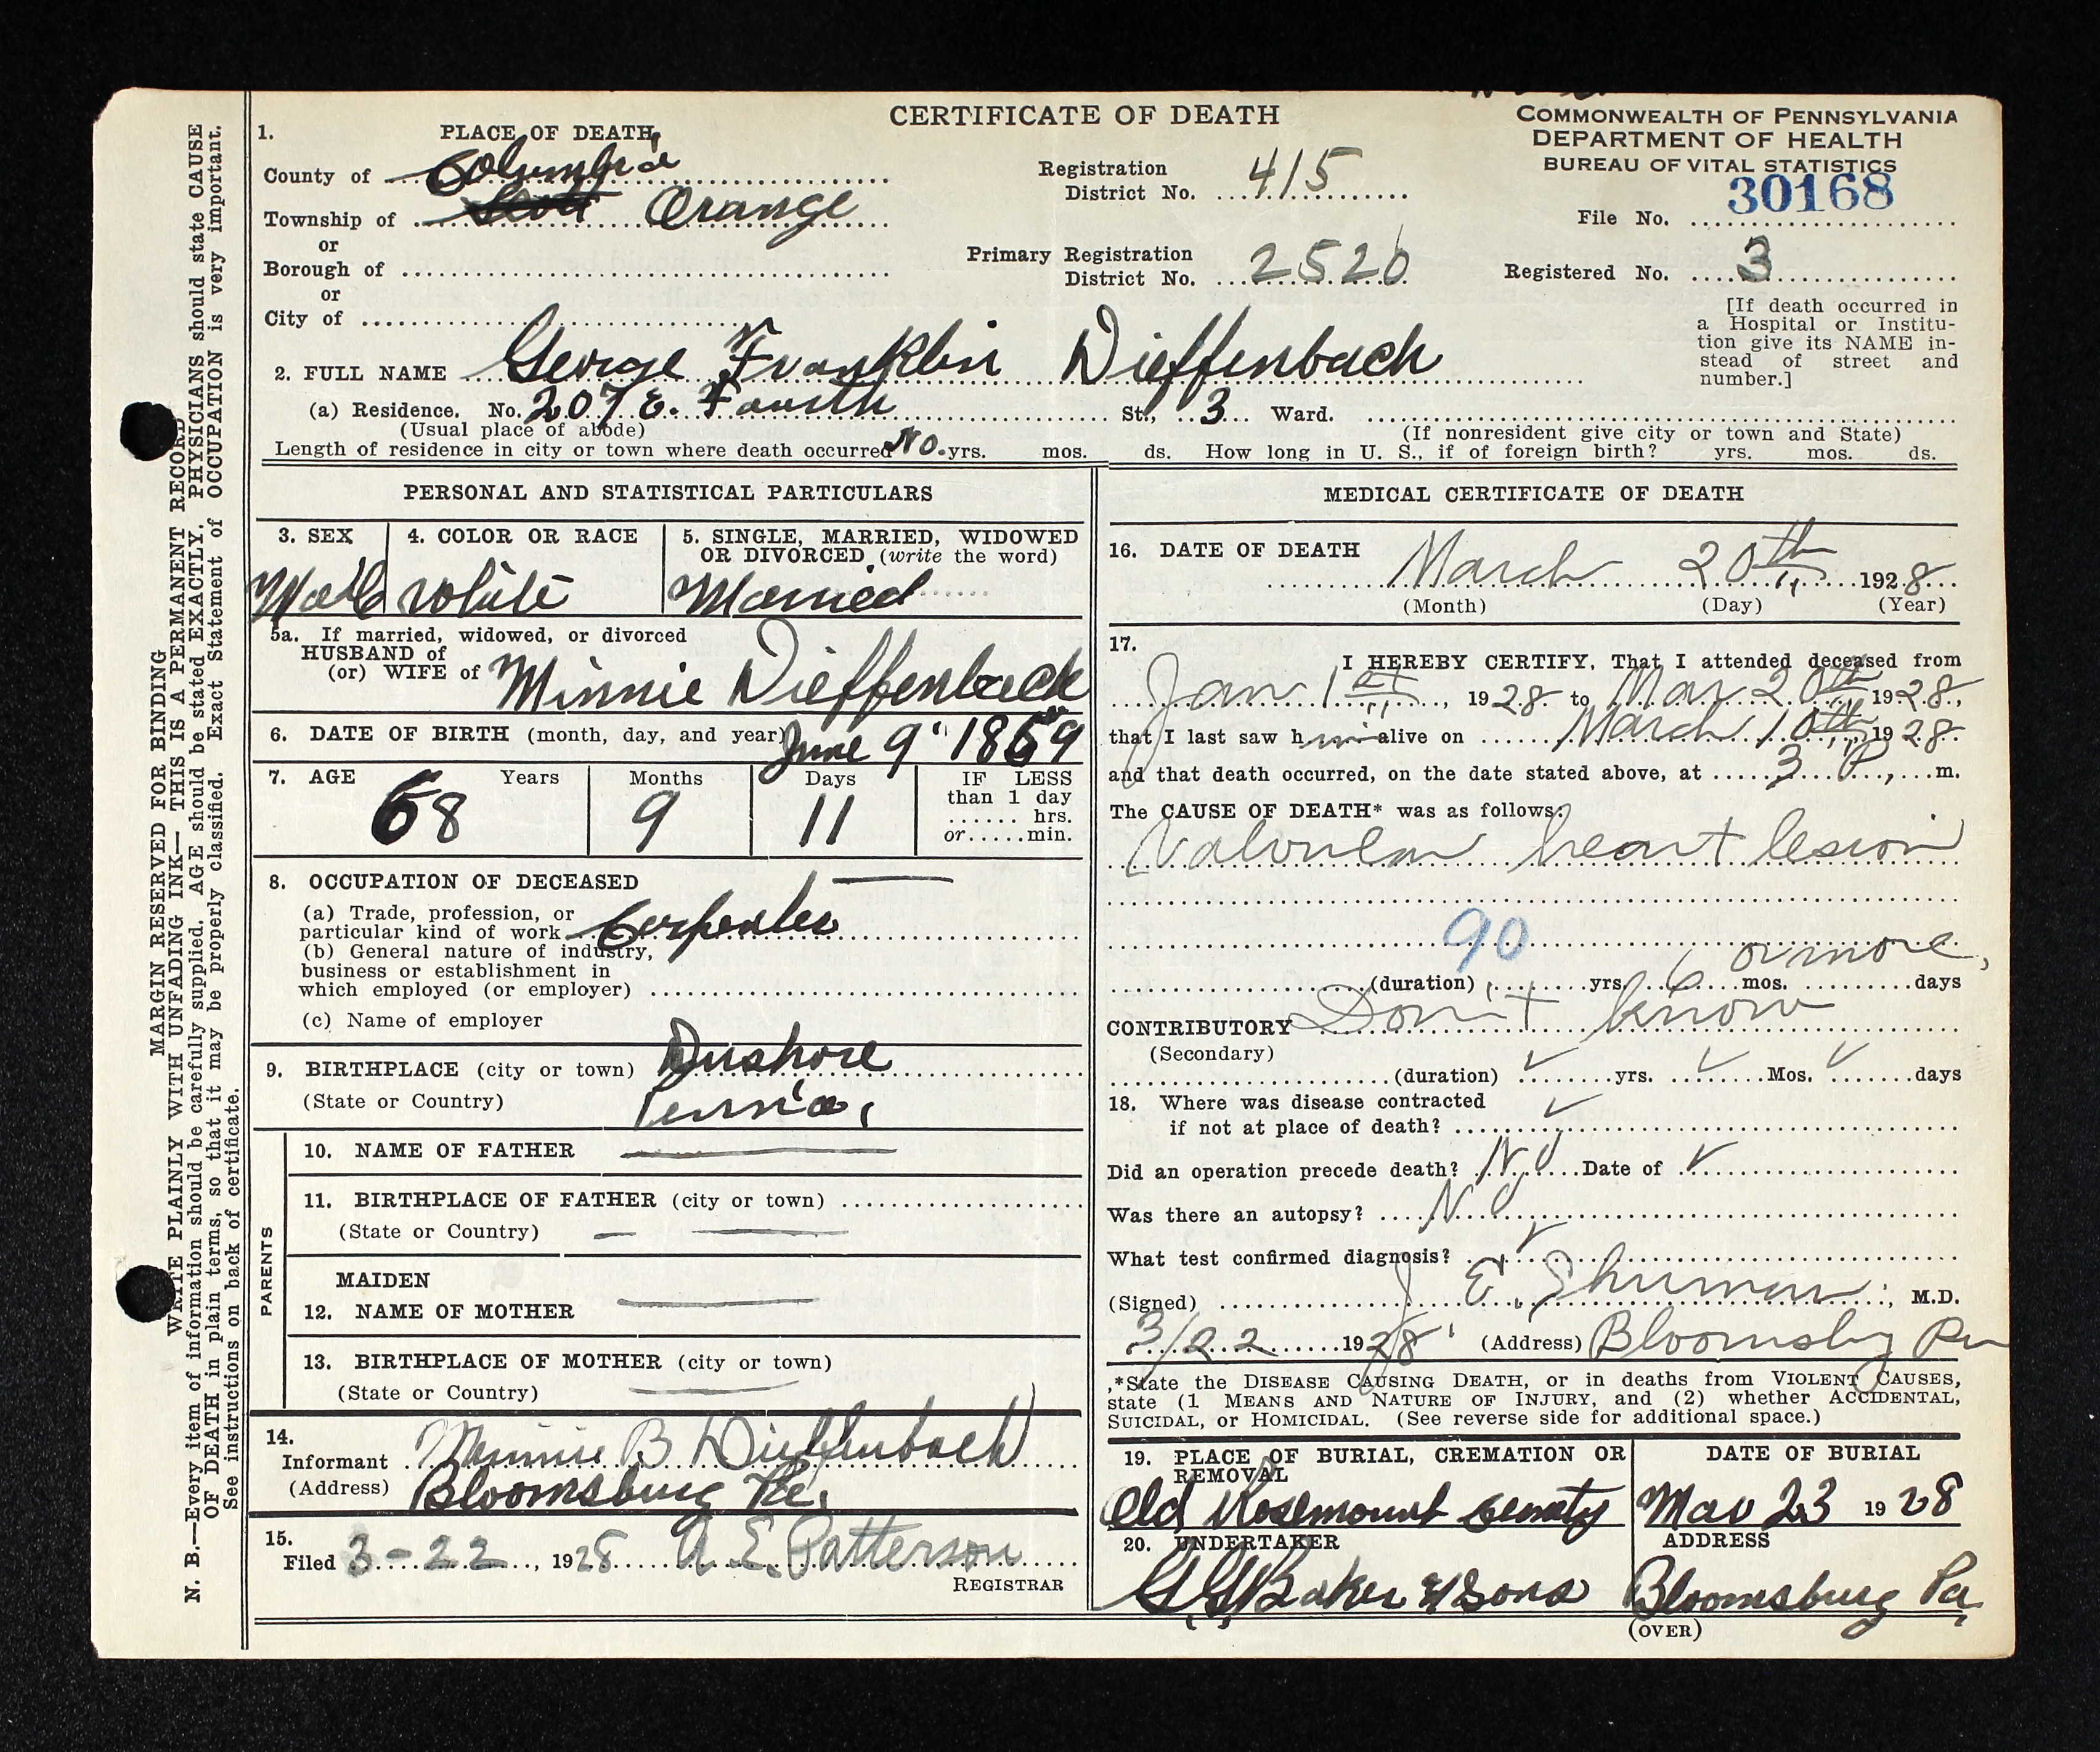 CERTIFICATE OF DEATH
COMMONWEALTH OF PENNSYLVANIA
DEPARTMENT OF HEALTH
BUREAU OF VITAL STATISTICS
1. PLACE OF DEATH
County of Columbia
Township of Scott Orange
or
Borough of
or
City of
Registration
District No. 415
Primary Registration
District No. 2520
File No. 30168
Registered No. 3
[If death occurred in
a Hospital or Institu-
tion give its NAME in-
stead of street and
number.]
2. FULL NAME George Franklin Dieffenbach
(a) Residence. No. 207 E. Fourth St., 3 Ward.
(Usual place of abode) (If nonresident give city or town and State)
Length of residence in city or town where death occurred No. yrs. mos. ds. How long in U. S., if of foreign birth? yrs. mos. ds.
PERSONAL AND STATISTICAL PARTICULARS
3. SEX
Male
4. COLOR OR RACE
White
5. SINGLE, MARRIED, WIDOWED
OR DIVORCED (write the word)
Married
5a. If married, widowed, or divorced
HUSBAND of
(or) WIFE of Minnie Dieffenbach
6. DATE OF BIRTH (month, day, and year) June 9" 1859
7. AGE Years Months Days
68 9 11
IF LESS
than 1 day
...... hrs.
or.....min.
8. OCCUPATION OF DECEASED
(a) Trade, profession, or
particular kind of work Carpenter
(b) General nature of industry,
business or establishment in
which employed (or employer)
(c) Name of employer
9. BIRTHPLACE (city or town) Dushore
(State or Country) Penn'a.
PARENTS
10. NAME OF FATHER
11. BIRTHPLACE OF FATHER (city or town)
(State or Country)
MAIDEN
12. NAME OF MOTHER
13. BIRTHPLACE OF MOTHER (city or town)
(State or Country)
14.
Informant Minnie B Dieffenbach
(Address) Bloomsburg Pa.
15.
Filed 3-22, 1928 A. E. Patterson
REGISTRAR
MEDICAL CERTIFICATE OF DEATH
16. DATE OF DEATH
March 20th 1928
(Month) (Day) (Year)
17.
I HEREBY CERTIFY, That I attended deceased from
Jan 1st, 1928 to Mar 20th 1928,
that I last saw him alive on March 10th 1928.
and that death occurred, on the date stated above, at 3 P. m.
The CAUSE OF DEATH* was as follows:
Valvular heart lesion
90
or more,
(duration) yrs. 6 mos. days
CONTRIBUTORY Don't know
(Secondary)
(duration) ✓ yrs. ✓ Mos. ✓ days
18. Where was disease contracted
if not at place of death? ✓
Did an operation precede death? No Date of ✓
Was there an autopsy? No
What test confirmed diagnosis? ✓
(Signed) J. E. Shuman, M.D.
3/22 1928 (Address) Bloomsbg Pa
*State the DISEASE CAUSING DEATH, or in deaths from VIOLENT CAUSES,
state (1 MEANS AND NATURE OF INJURY, and (2) whether ACCIDENTAL,
SUICIDAL, OR HOMICIDAL. (See reverse side for additional space.)
19. PLACE OF BURIAL, CREMATION OR
REMOVAL
Old Rosemount
DATE OF BURIAL
Mar 23 1928
20. UNDERTAKER
Baker & Sons
ADDRESS
Bloomsburg Pa.
(OVER)
MARGIN RESERVED FOR BINDING
WRITE PLAINLY WITH UNFADING INK—THIS IS A PERMANENT RECORD
N. B.—Every item of information should be carefully supplied. AGE should be stated EXACTLY. PHYSICIANS should state CAUSE
OF DEATH in plain terms, so that it may be properly classified. Exact Statement of OCCUPATION is very important.
See instructions on back of certificate.